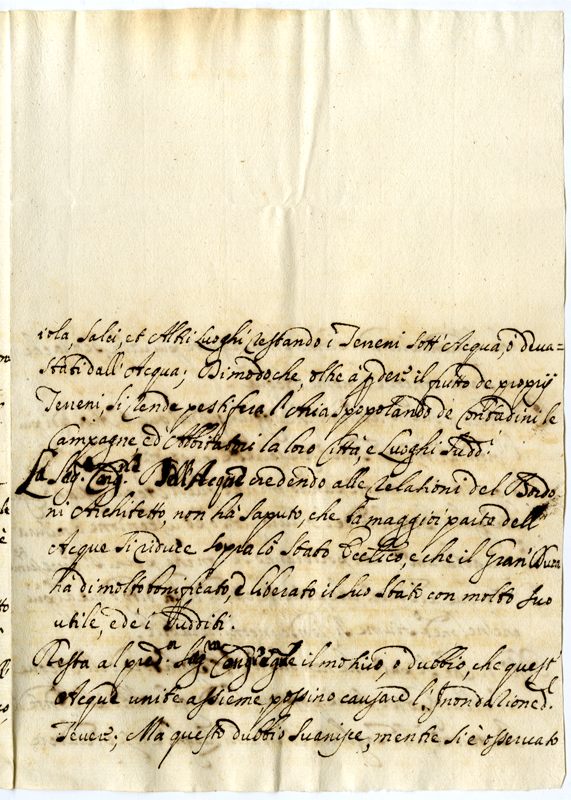 iola, Salci, et Altri Luoghi restando i Terreni sott' Acqua, ò deua=
stati dall' Acqua; Di modo che, oltre à perder il frutto de proprij
Terreni, si rende pestifera l' Aria spopolando de Contadini le
Campagne ed' Abbitatori la loro Città e Luoghi sudd.
La Sag. Cong. dell' Acque credendo alle relationi del Bordo
ni Architetto, non hà saputo, che la maggior parte dell
Acque si riduce sopra lo Stato Ecclico, e che il Gran Duca
hà di molto bonificato, e liberato il suo Stato con molto suo
utile, ed è i sudditi.
Resta al pred. Sag. Cong. il motiuo, o dubbio, che quest
Acque unite assieme possino causare l' Inondatione d.
Teuere; Mà questo dubbio suanisce, mentre si è osseruato